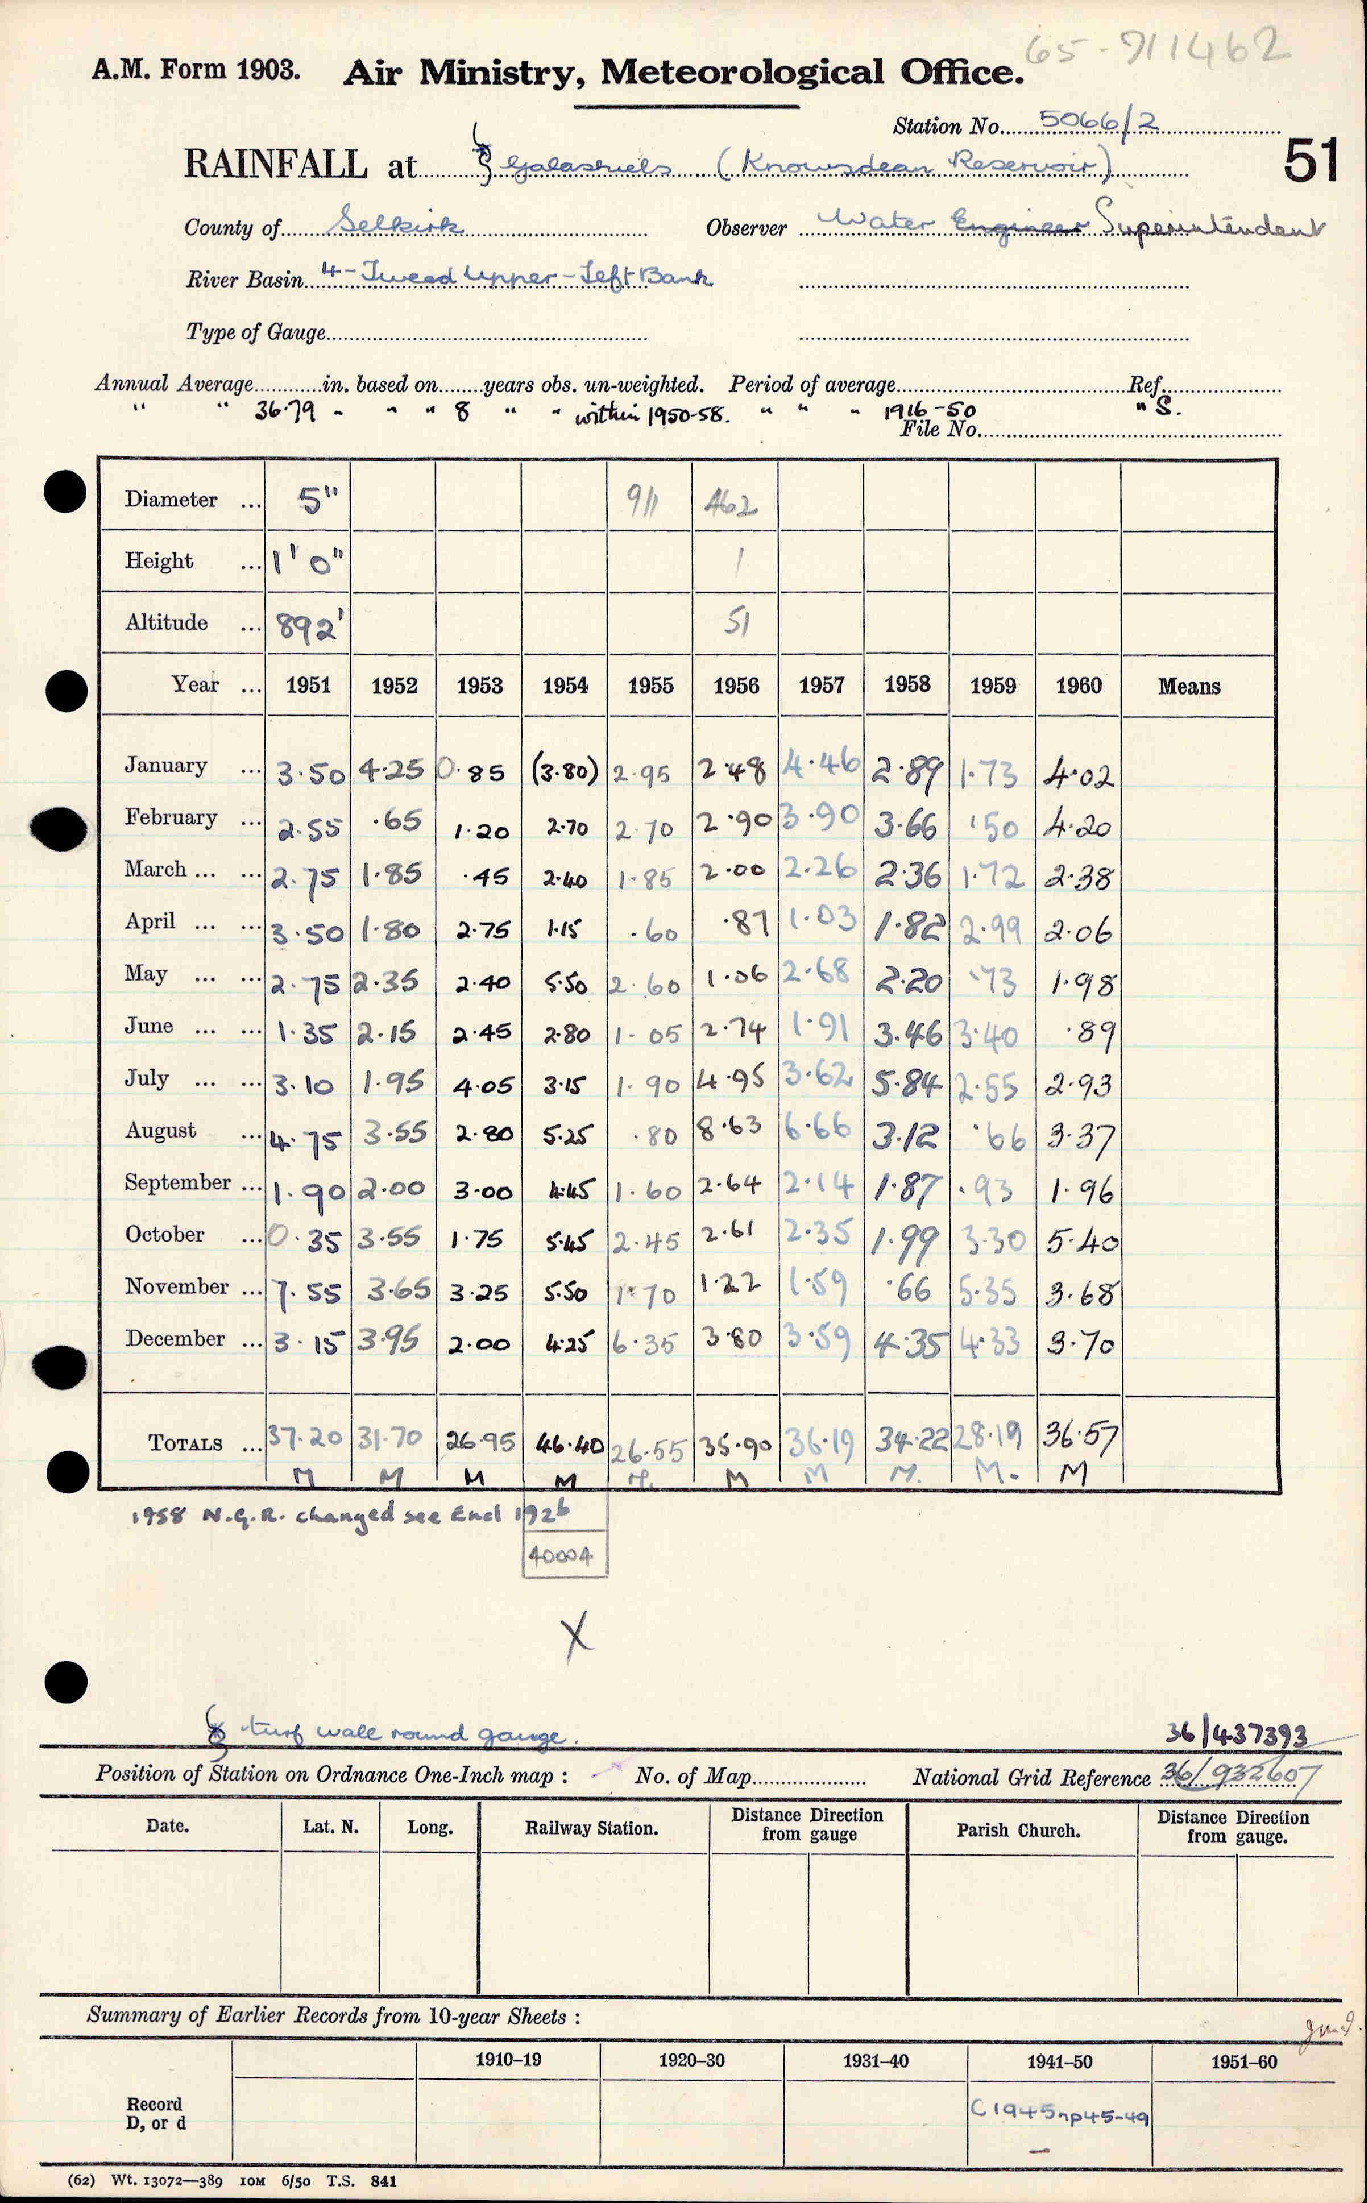 65-911462
A.M. Form 1903. Air Ministry, Meteorological Office.
Station No. 5066/2
RAINFALL at Galashiels (Knowsdean Reservoir) 51
County of Selkirk Observer Water Engineer Superintendent
River Basin 4-Tweed Upper-Left Bank
Type of Gauge
Annual Average in. based on years obs. un-weighted. Period of average Ref.
" " 36.79 " " " 8 " " within 1950-58. " " " 1916-50 " S.
File No.
Diameter ... 5" 911 462
Height ... 1' 0" 1
Altitude ... 892' 51
Year ... 1951 1952 1953 1954 1955 1956 1957 1958 1959 1960 Means
January ... 3.50 4.25 0.85 (3.80) 2.95 2.48 4.46 2.89 1.73 4.02
February ... 2.55 .65 1.20 2.70 2.70 2.90 3.90 3.66 .50 4.20
March ... ... 2.75 1.85 .45 2.40 1.85 2.00 2.26 2.36 1.72 2.38
April ... ... 3.50 1.80 2.75 1.15 .60 .87 1.03 1.82 2.99 2.06
May ... ... 2.75 2.35 2.40 5.50 2.60 1.06 2.68 2.20 .73 1.98
June ... ... 1.35 2.15 2.45 2.80 1.05 2.74 1.91 3.46 3.40 .89
July ... ... 3.10 1.95 4.05 3.15 1.90 4.95 3.62 5.84 2.55 2.93
August ... 4.75 3.55 2.80 5.25 .80 8.63 6.66 3.12 .66 3.37
September ... 1.90 2.00 3.00 4.45 1.60 2.64 2.14 1.87 .93 1.96
October ... 0.35 3.55 1.75 5.45 2.45 2.61 2.35 1.99 3.30 5.40
November ... 7.55 3.65 3.25 5.50 1.70 1.22 1.59 .66 5.35 3.68
December ... 3.15 3.95 2.00 4.25 6.35 3.80 3.59 4.35 4.33 3.70
TOTALS ... 37.20 31.70 26.95 46.40 26.55 35.90 36.19 34.22 28.19 36.57
M M M M M. M M M. M. M
1958 N.G.R. changed see Encl 192b
40004
X
turf wall round gauge. 36/437393
Position of Station on Ordnance One-Inch map : No. of Map National Grid Reference 36/932607
Date. Lat. N. Long. Railway Station. Distance Direction from gauge Parish Church. Distance Direction from gauge.
Summary of Earlier Records from 10-year Sheets :
1910-19 1920-30 1931-40 1941-50 1951-60
Record D, or d C1945 np45-49
-
(62) Wt. 13072—389 10M 6/50 T.S. 841